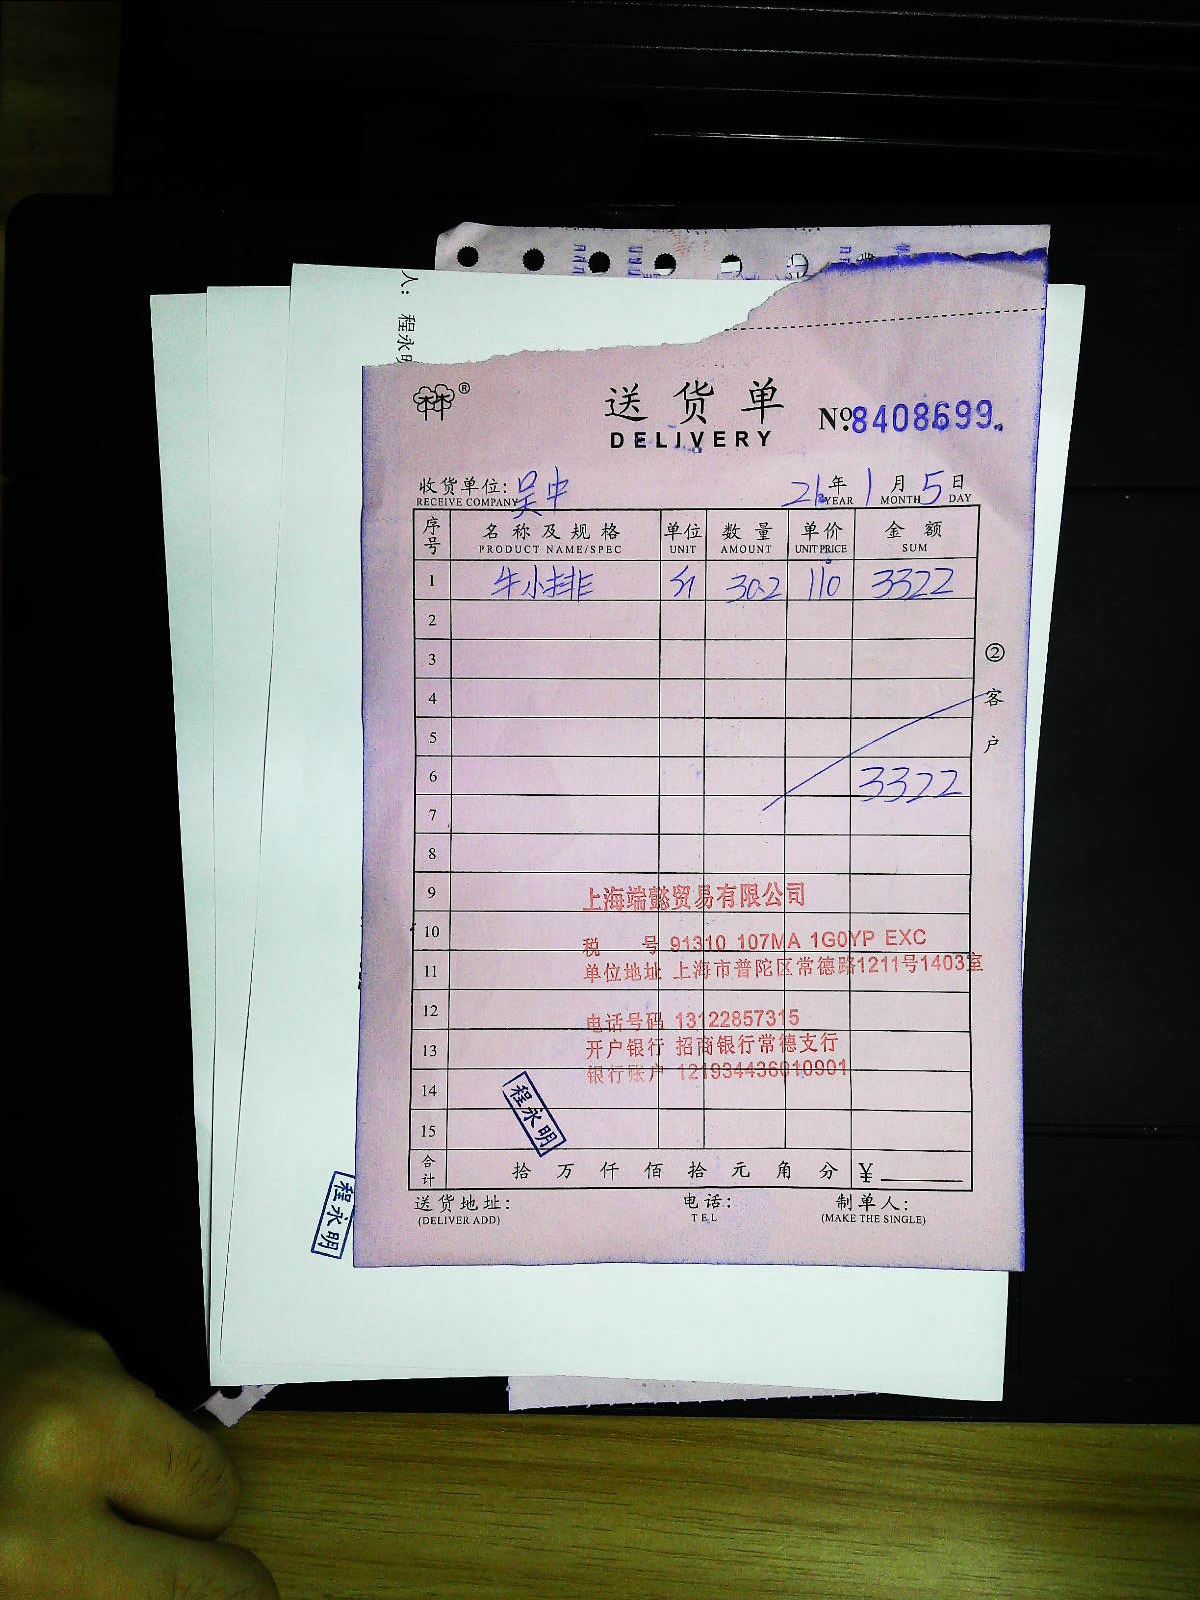 人: 程永明
林®
送货单
DELIVERY
№8408699
收货单位: 吴中 21年1月5日
RECEIVE COMPANY YEAR MONTH DAY
序号 名称及规格 单位 数量 单价 金额
PRODUCT NAME/SPEC UNIT AMOUNT UNIT PRICE SUM
1 牛小排 斤 30.2 110 3322
2
3
4
5
6 3322
7
8
9
10
11
12
13
14
15
②客户
上海端懿贸易有限公司
税 号 91310 107MA 1G0YP EXC
单位地址 上海市普陀区常德路1211号1403室
电话号码 13122857315
开户银行 招商银行常德支行
银行账户 121934436010901
程永明
合计 拾 万 仟 佰 拾 元 角 分 ¥
送货地址: 电话: 制单人:
(DELIVER ADD) TEL (MAKE THE SINGLE)
程永明